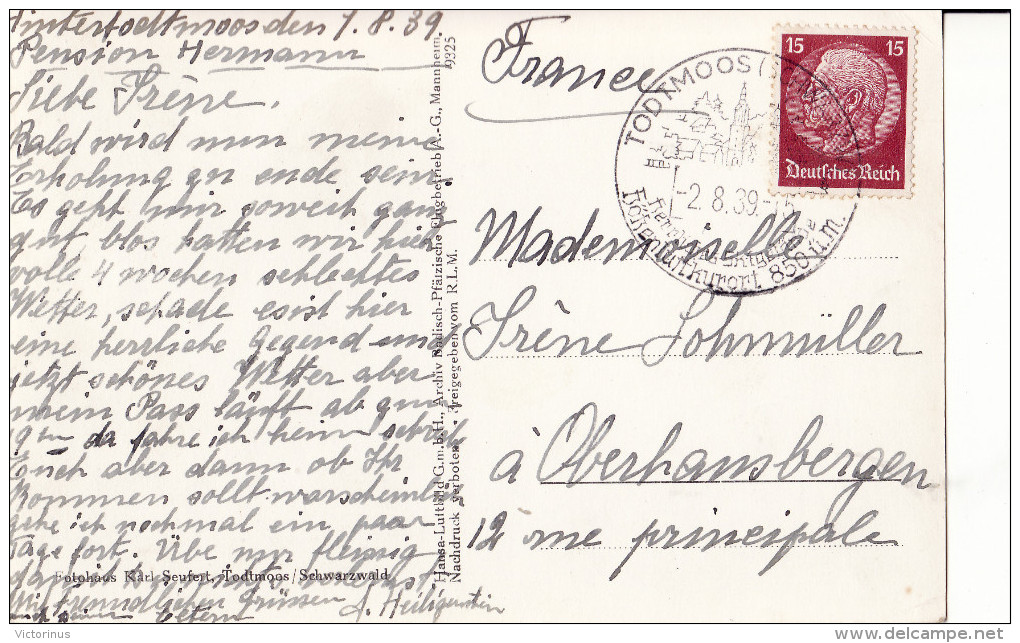 Hintertodtmoos den 1.8.39
Pension Hermann
Liebe Irène,
Bald wird nun meine
Erholung zu ende sein
Es geht mir soweit ganz
gut blos hatten wir hier
volle 4 wochen schlechtes
Wetter, schade es ist hier
eine herrliche Gegend und
jetzt schönes Wetter aber
mein Pass läuft ab
da fahre ich heim schreibe
Euch aber dann ob Ihr
Kommen sollt warscheinlich
gehe ich nochmal ein paar
Tage fort. Übe nur fleissig
Mit freundlichen Grüssen
auch deinen Eltern
J. Heiligenstein
Fotohaus Karl Seufert, Todtmoos/Schwarzwald
Hansa-Luftbild G.m.b.H., Archiv Badisch-Pfälzische Flugbetrieb A.-G., Mannheim
Nachdruck verboten • Freigegeben vom R.L.M. 9325
France
TODTMOOS
-2.8.39
Höhenluftkurort 850 ü.m.
15 15
Deutsches Reich
Mademoiselle
Irène Lohmüller
à Oberhausbergen
12 me principale
Victorinus
delcampe.net